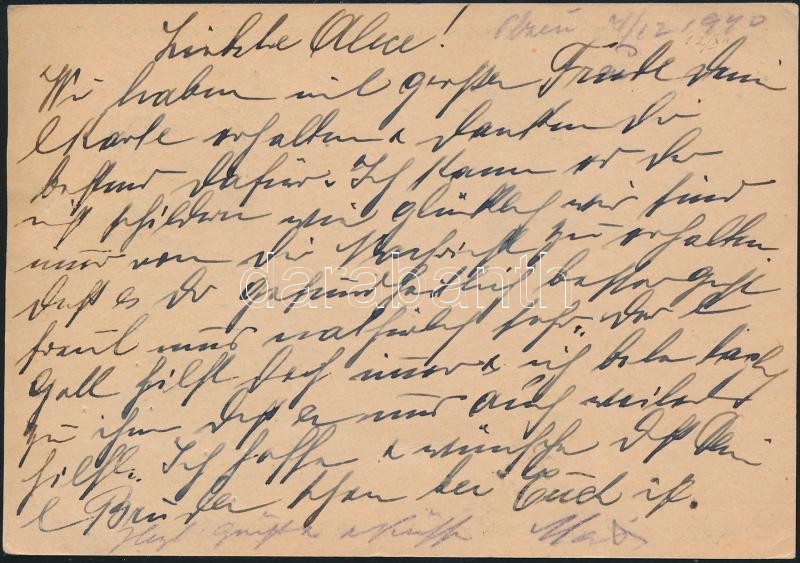 Liebste Alice! 7/12 1940
Wir haben mit großer Freude Dein
l Karte erhalten & danken Dir
bestens dafür. Ich kann es Dir
nicht schildern wie glücklich wir sind
nur von Dir Nachricht zu erhalten
daß es Dir gesundheitlich besser geht
freut uns natürlich sehr. Der l
Gott hilft doch immer & ich bete
zu ihm daß er uns auch weiter
hilft. Ich hoffe & wünsche daß Dein
l Bruder schon bei Euch ist.
Grüße & Küsse
darabanth